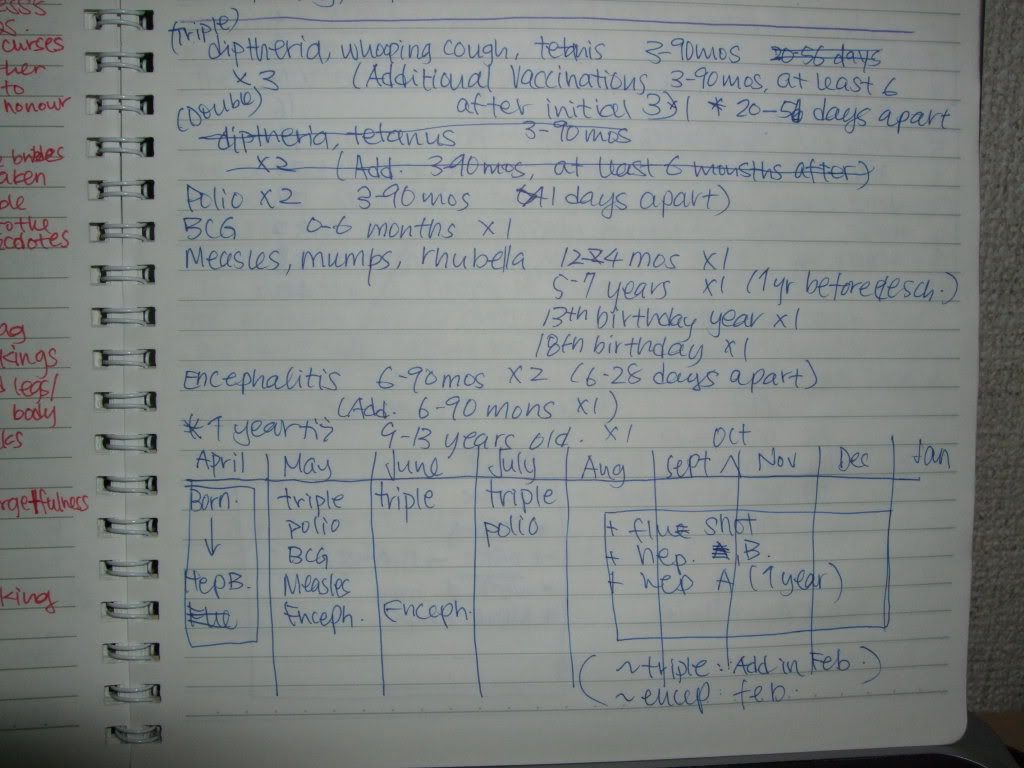 esss
os.
curses
ther
to
honour
brides
aken
ole
othe
ecdotes
ag
kings
d legs/
body
ks
rgetfulness
king
(triple)
diptheria, whooping cough, tetnis 3-90mos 20-56 days
x 3 (Additional vaccinations, 3-90mos, at least 6
(Double) after initial 3) x1 * 20-56 days apart
diptheria, tetanus 3-90 mos
x2 (Add. 3-90mos, at least 6 mounsths after)
Polio x2 3-90 mos (41 days apart)
BCG 0-6 months x1
Measles, mumps, rhubella 12-24 mos x1
5-7 years x1 (1yr before sch.)
13th birthday year x1
18th birthday x1
Encephalitis 6-90mos x2 (6-28 days apart)
(Add. 6-90 mons x1)
* 1 year 9-13 years old. x1
April May June July Aug Sept Oct Nov Dec Jan
Born. triple triple triple
polio polio + flu shot
BCG + hep. B.
HepB. Measles + hep A (1 year)
Flue Enceph. Enceph.
(~triple: Add in Feb.)
~encep: feb.